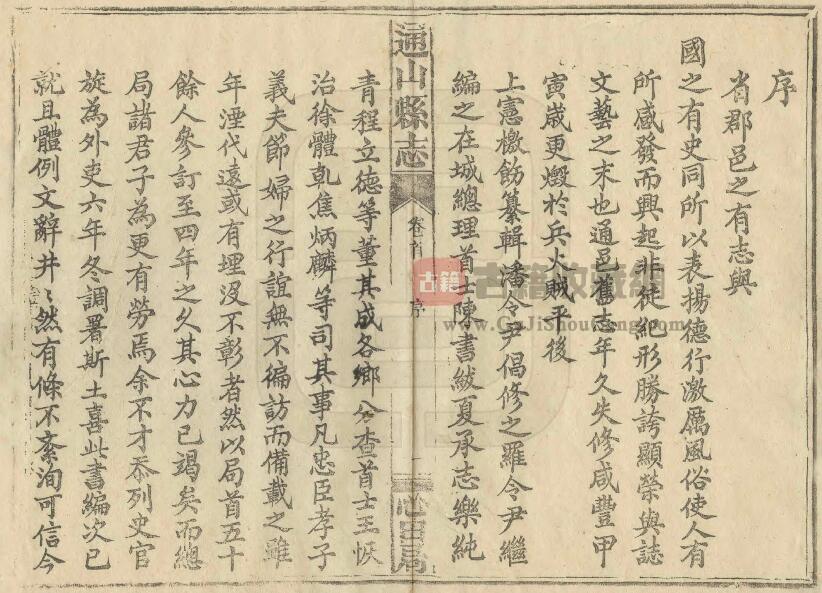 序
省郡邑之有志與
國之有史同所以表揚德行激厲風俗使人有
所感發而興起非徒紀形勝誇顯榮與誌
文藝之末也通邑舊志年久失修咸豐甲
寅歲更燬於兵火賊平後
上憲檄飭纂輯潘令尹倡修之羅令尹繼
編之在城總理首士陳書紱夏承志樂純
通山縣志
卷首
序
一
志書局
青程立德等董其成各鄉分查首士王恢
治徐體乹焦炳麟等司其事凡忠臣孝子
義夫節婦之行誼無不徧訪而備載之雖
年湮代遠或有埋沒不彰者然以局首五十
餘人參訂至四年之久其心力已竭矣而總
局諸君子為更有勞焉余不才忝列史官
旋為外吏六年冬調署斯土喜此書編次已
就且體例文辭井〻然有條不紊洵可信今
古籍
古籍收藏網
www.GuJiShouCang.com